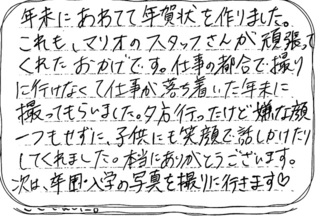 年末にあわてて年賀状を作りました。
これも、マリオのスタッフさんが頑張って
くれたおかげです。仕事の都合で撮り
に行けなくて仕事が落ち着いた年末に
撮ってもらいました。夕方行ったけど嫌な顔
一つもせずに、子供にも笑顔で話しかけたり
してくれました。本当にありがとうございます。
次は、卒園・入学の写真を撮りに行きます♡